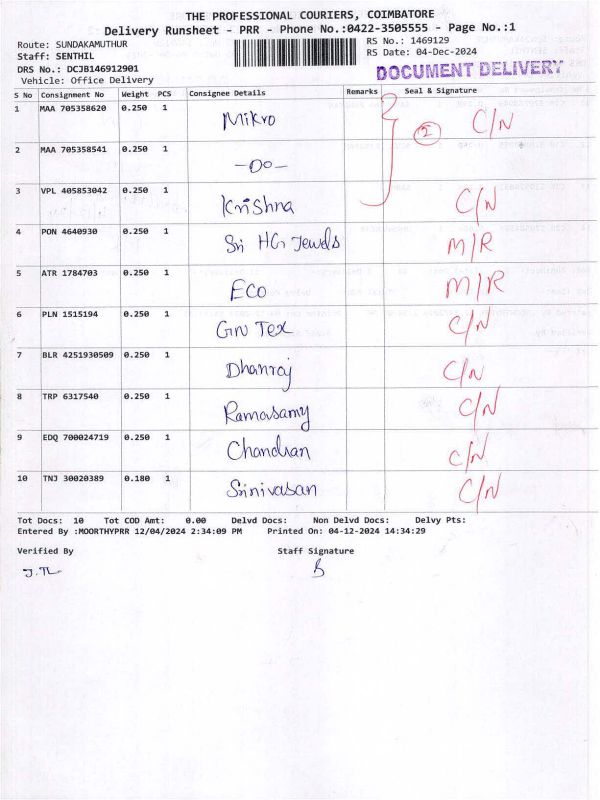 THE PROFESSIONAL COURIERS, COIMBATORE
Delivery Runsheet - PRR - Phone No.:0422-3505555 - Page No.:1
Route: SUNDAKAMUTHUR
RS No.: 1469129
Staff: SENTHIL
RS Date: 04-Dec-2024
DRS No.: DCJB146912901
Vehicle: Office Delivery
DOCUMENT DELIVERY
S No Consignment No Weight PCS Consignee Details Remarks Seal & Signature
1 MAA 705358620 0.250 1 Mikro 2 C/N
2 MAA 705358541 0.250 1 -DO-
3 VPL 405853042 0.250 1 Krishna C/N
4 PON 4640930 0.250 1 Sri HG Jewels M/R
5 ATR 1784703 0.250 1 ECO M/R
6 PLN 1515194 0.250 1 Tex C/N
7 BLR 4251930509 0.250 1 Dhanraj C/N
8 TRP 6317540 0.250 1 Ramasamy C/N
9 EDQ 700024719 0.250 1 Chandran C/N
10 TNJ 30020389 0.180 1 Srinivasan C/N
Tot Docs: 10 Tot COD Amt: 0.00 Delvd Docs: Non Delvd Docs: Delvy Pts:
Entered By :MOORTHYPRR 12/04/2024 2:34:09 PM Printed On: 04-12-2024 14:34:29
Verified By Staff Signature